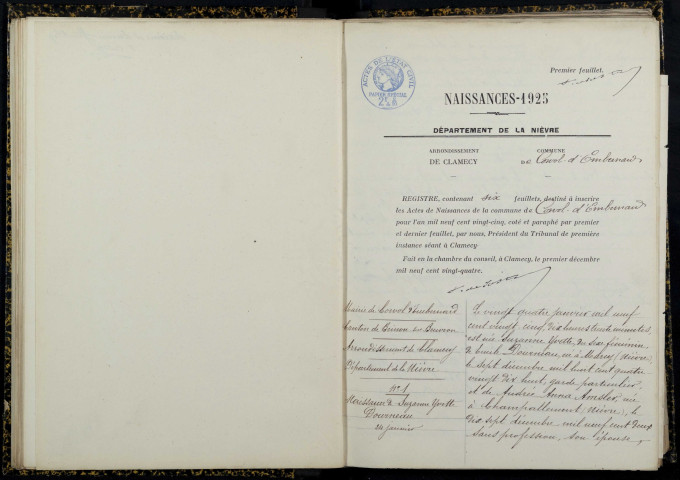 Premier feuillet.
ACTES DE L'ÉTAT CIVIL
PAPIER SPÉCIAL
NAISSANCES-1925
DÉPARTEMENT DE LA NIÈVRE
ARRONDISSEMENT
DE CLAMECY
COMMUNE
DE Corvol-d'Embernard
REGISTRE, contenant six feuillets, destiné à inscrire
les Actes de Naissances de la commune de Corvol-d'Embernard
pour l'an mil neuf cent vingt-cinq, coté et paraphé par premier
et dernier feuillet, par nous, Président du Tribunal de première
instance séant à Clamecy
Fait en la chambre du conseil, à Clamecy, le premier décembre
mil neuf cent vingt-quatre.
Mairie de Corvol d'Embernard
Canton de Brinon sur Beuvron
Arrondissement de Clamecy
Département de la Nièvre
N° 1
Naissance de Suzanne Yvette
Dourneau
24 janvier
Le vingt quatre janvier mil neuf
cent vingt cinq, dix heures trente minutes,
est née Suzanne Yvette, du sexe féminin,
de Dourneau, né à Nièvre,
le sept décembre mil huit cent quatre
vingt dix huit, garde particulier,
et de Andrée Anna née
à Champallement, Nièvre, le
dix sept décembre mil neuf cent deux
sans profession, son épouse,